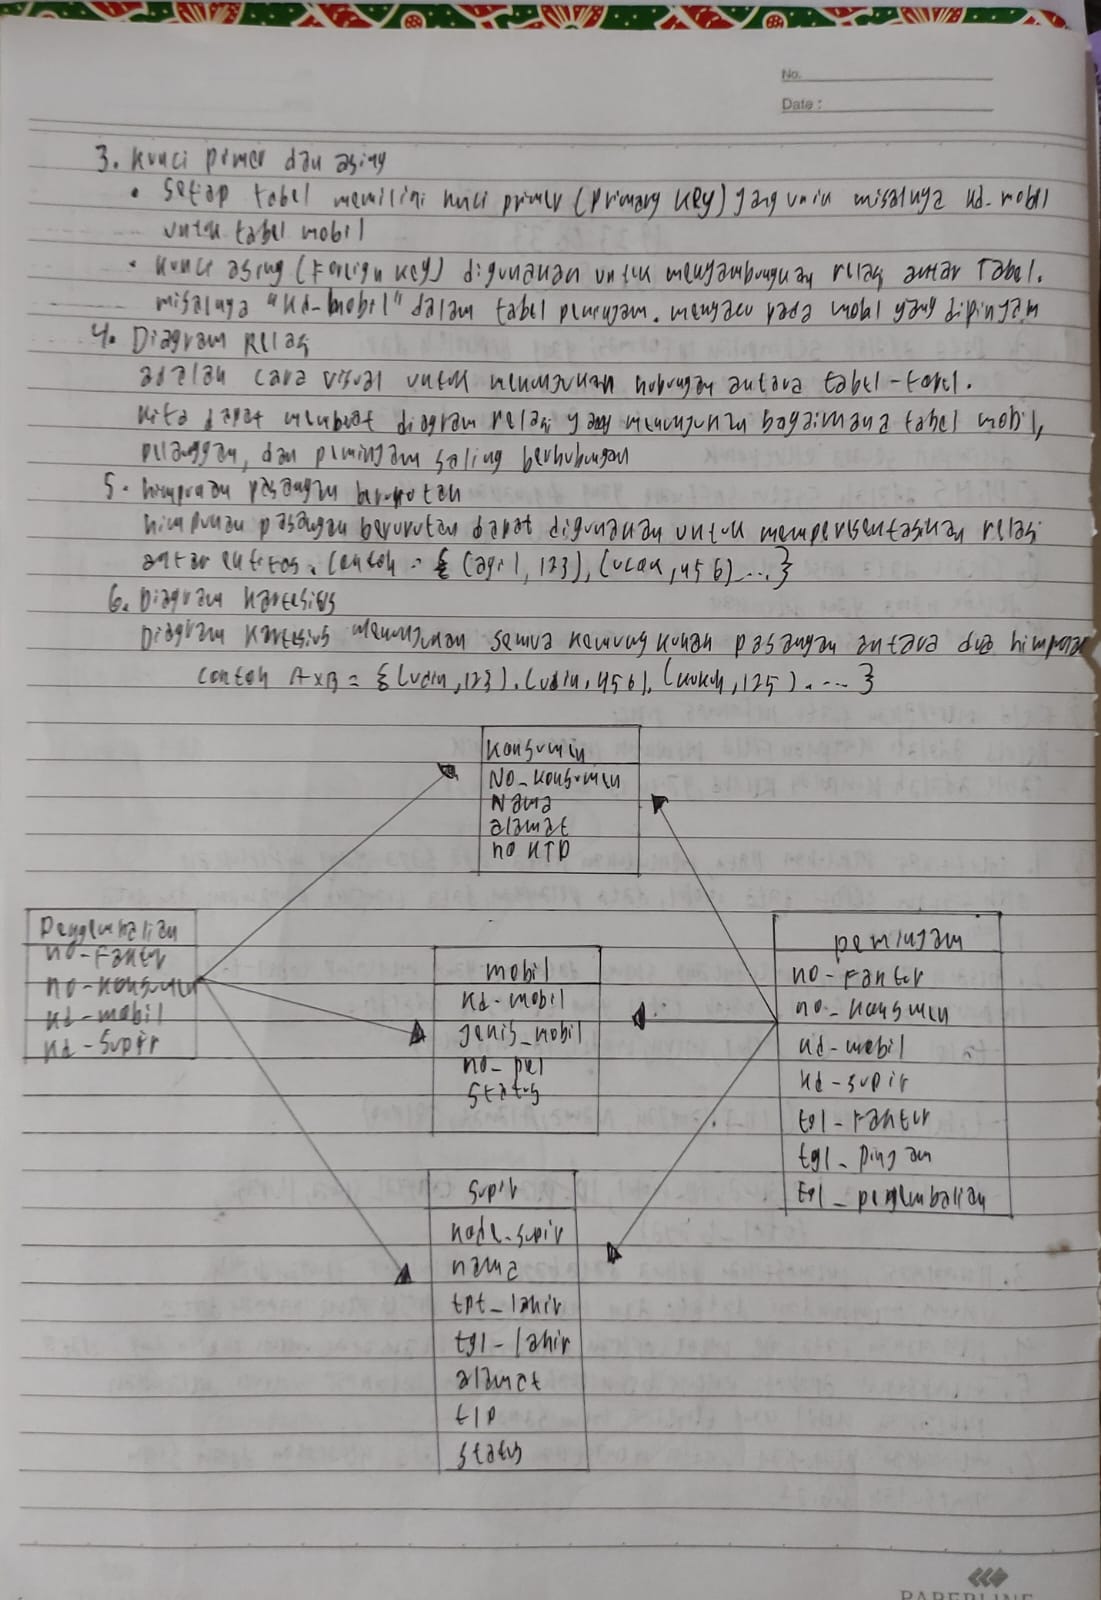 No.
Date :
3. Kunci primer dan asing
• Setiap tabel memiliki kunci primer (Primary Key) yang unik misalnya kd-mobil
untuk tabel mobil
• kunci asing (Foreign key) digunakan untuk menyambungkan relasi antar Tabel.
misalnya "kd-mobil" dalam tabel peminjam. mengacu pada mobil yang dipinjam
4. Diagram Relasi
adalah cara visual untuk menunjukan hubungan antara tabel-tabel.
kita dapat membuat diagram relasi yang menunjukan bagaimana tabel mobil,
pelanggan, dan peminjam saling berhubungan
5. himpunan pasangan berurutan
himpunan pasangan berurutan dapat digunakan untuk mempersentasikan relasi
antar entitas. Contoh = { (agil, 123), (ucok, 456) .... }
6. Diagram kartesius
Diagram kartesius menunjukan semua kemungkinan pasangan antara dua himpunan
contoh A×B = { (udin, 123). (udin, 456), (kokoh, 125) . .... }
Konsumen
No_konsumen
Nama
alamat
no KTP
Pengembalian
no-Faktur
no-konsumen
kd-mobil
kd-supir
mobil
kd-mobil
jenis_mobil
no-pol
status
peminjam
no-Faktur
no_konsumen
kd-mobil
kd-supir
tgl-Faktur
tgl_pinjam
tgl_pengembalian
supir
kode_supir
nama
tpt_lahir
tgl-lahir
alamat
tlp
status
PAPERLINE